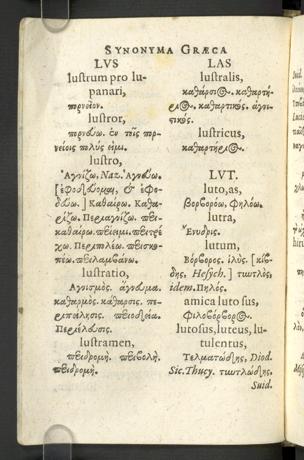 SYNONYMA GRÆCA
LVS
lustrum pro lu-
panari,
πορνεῖον.
lustror,
πορνεύω. ἐν τῖς πορ-
νείοις πολύς εἰμι.
lustro,
Ἁγνίζω. Naz. Ἁγνεύω.
& ἐφο-
δεύω.] Καθαίρω. Καθα-
ρίζω. Περιαγνίζω.
καθαίρω.
χω. Περιπολέω.
πέω.
lustratio,
Ἁγνισμός. ἅγνευμα.
καθαρμός. κάθαρσις. πε-
ριπόλησις.
Περιέλευσις.
lustramen,
περιδρομή. περιβολή.
περιδρομή.
LAS
lustralis,
καθάρσιος. καθαρτή-
ριος. καθαρτικός. ἁγνι-
στικός.
lustricus,
καθαρτήριος.
LVT.
luto, as,
βορβορόω. Πηλόω.
lutra,
Ἔνυδρις.
lutum,
Βόρβορος. ἰλύς. [κίν-
δης, Hesych.]
idem. Πηλός.
amica luto sus,
Φιλοβόρβορος.
lutosus, luteus, lu-
tulentus,
Τελματώδης, Diod.
Sic. Thucy.
Suid.